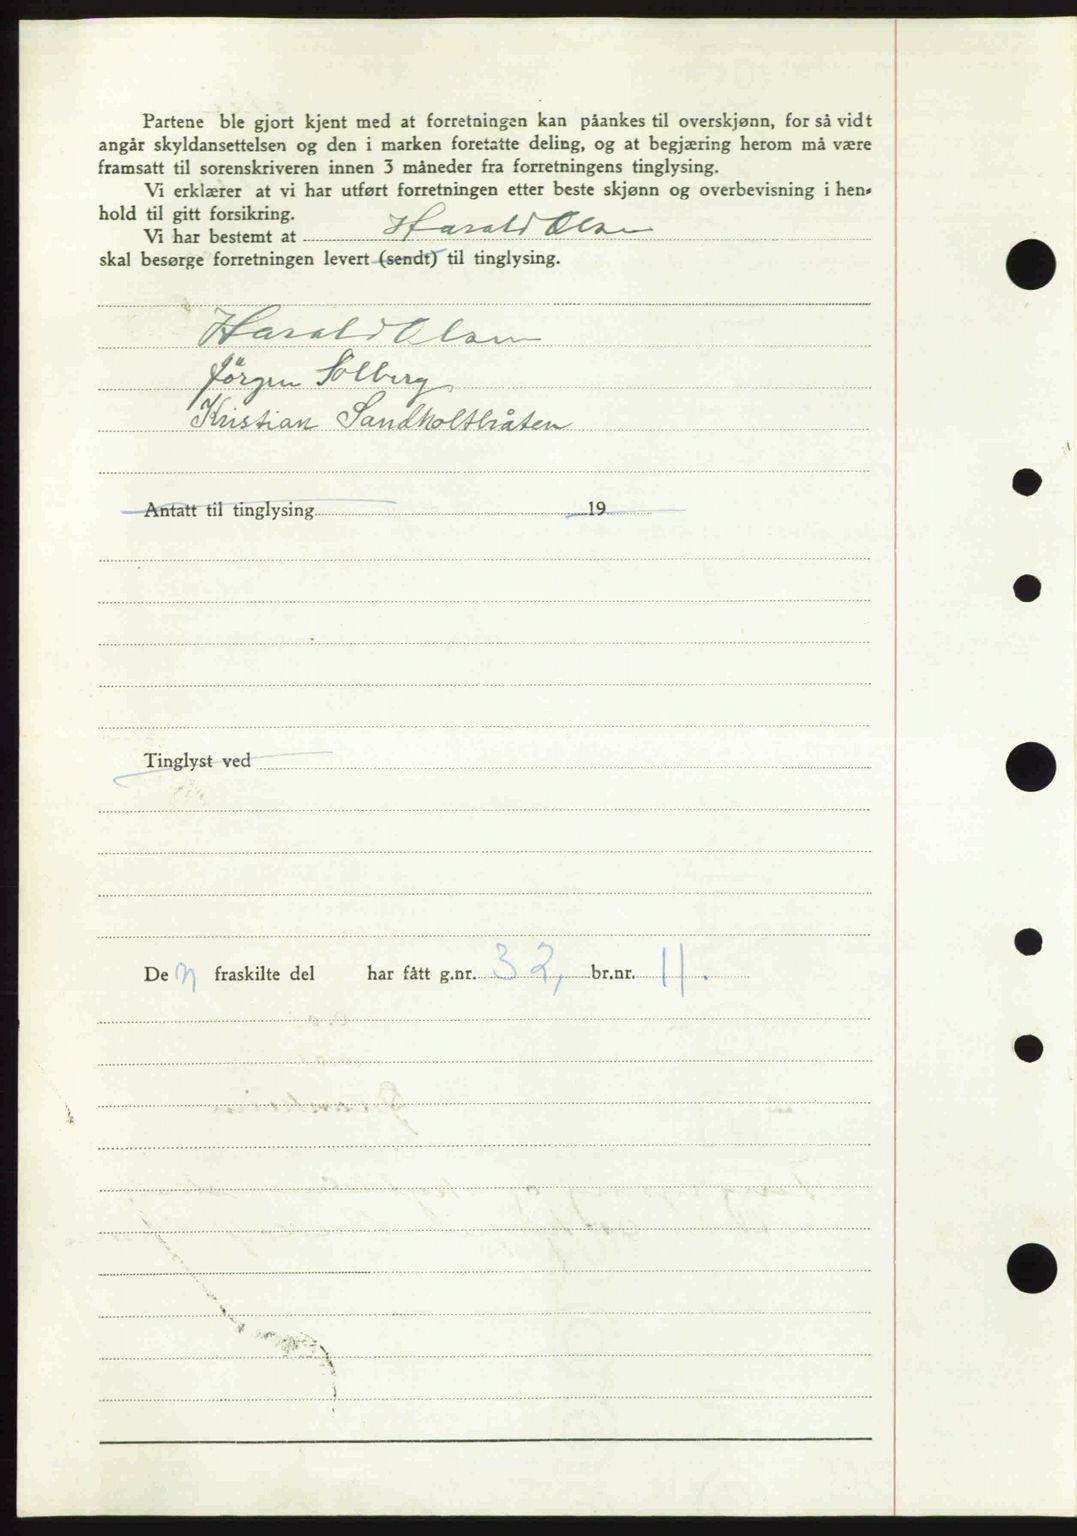 Partene ble gjort kjent med at forretningen kan påankes til overskjønn, for så vidt
angår skyldansettelsen og den i marken foretatte deling, og at begjæring herom må være
framsatt til sorenskriveren innen 3 måneder fra forretningens tinglysing.
Vi erklærer at vi har utført forretningen etter beste skjønn og overbevisning i hen-
hold til gitt forsikring.
Vi har bestemt at Harald Olsen
skal besørge forretningen levert (sendt) til tinglysing.
Harald Olsen
Jörgen Solberg
Kristian Sandholtbråten
Antatt til tinglysing 19
Tinglyst ved
De n fraskilte del har fått g.nr. 32, br.nr. 11.